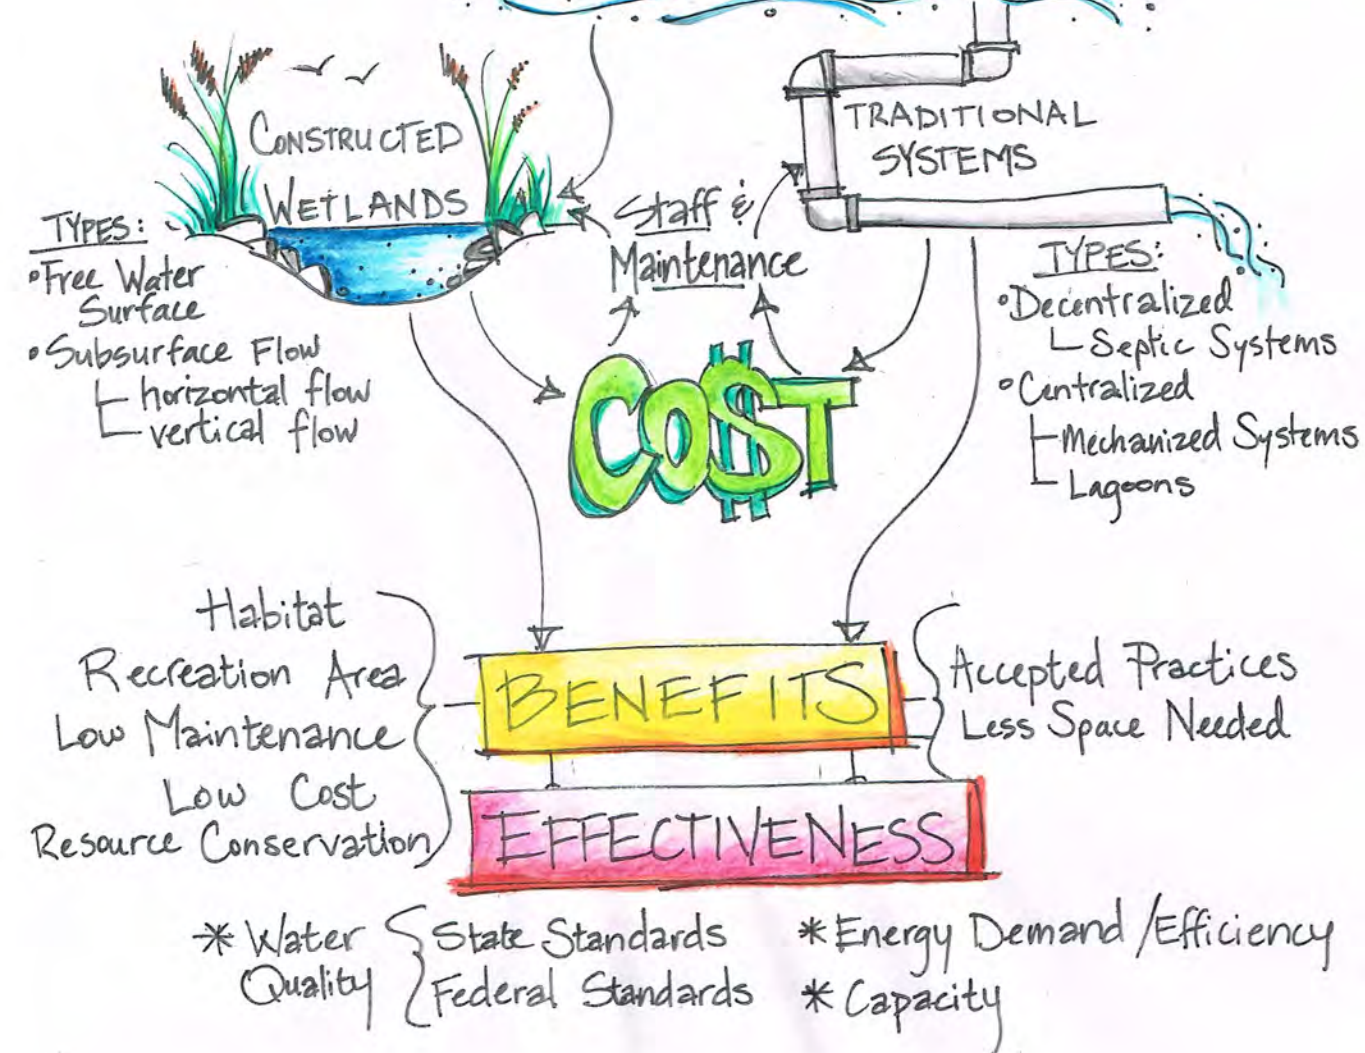 CONSTRUCTED
WETLANDS
TYPES:
•Free Water
Surface
•Subsurface Flow
horizontal flow
vertical flow
Staff &
Maintenance
COST
TRADITIONAL
SYSTEMS
TYPES:
•Decentralized
Septic Systems
•Centralized
Mechanized Systems
Lagoons
Habitat
Recreation Area
Low Maintenance
Low Cost
Resource Conservation
BENEFITS
Accepted Practices
Less Space Needed
EFFECTIVENESS
* Water
Quality
State Standards
Federal Standards
* Energy Demand/Efficiency
* Capacity